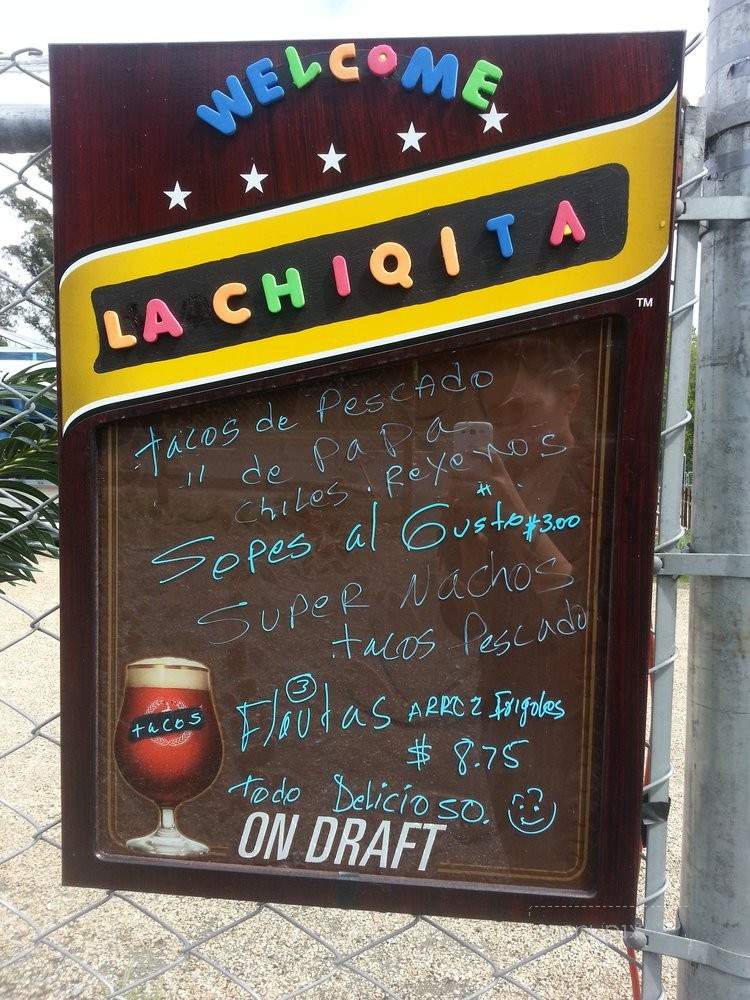 WELCOME
LA CHIQITA
TM
tacos de Pescado
" de Papa
chiles Reyenos
Sopes al Gusto $3.00
Super Nachos
tacos Pescado
3
Flautas ARROZ Frigoles
$ 8.75
todo Delicioso.
tacos
ON DRAFT